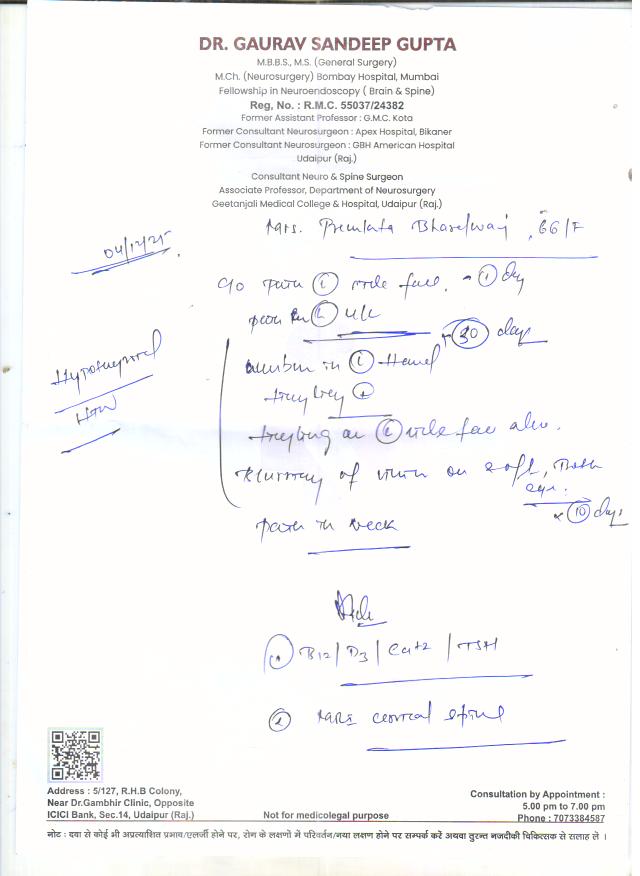 DR. GAURAV SANDEEP GUPTA
M.B.B.S., M.S. (General Surgery)
M.Ch. (Neurosurgery) Bombay Hospital, Mumbai
Fellowship in Neuroendoscopy ( Brain & Spine)
Reg, No. : R.M.C. 55037/24382
Former Assistant Professor : G.M.C. Kota
Former Consultant Neurosurgeon : Apex Hospital, Bikaner
Former Consultant Neurosurgeon : GBH American Hospital
Udaipur (Raj.)
Consultant Neuro & Spine Surgeon
Associate Professor, Department of Neurosurgery
Geetanjali Medical College & Hospital, Udaipur (Raj.)
Mrs. Premlata Bhardwaj, 66/F
04/12/25
c/o pain side face. 1 day
pain U/L
30 days
in Hand
HTN
side face also.
of vision on Both
eye.
x 10 days
pain in neck
Adv
① B12/ D3/ Ca+2 / TSH
② MRI cervical spine
Address : 5/127, R.H.B Colony,
Near Dr.Gambhir Clinic, Opposite
ICICI Bank, Sec.14, Udaipur (Raj.)
Not for medicolegal purpose
Consultation by Appointment :
5.00 pm to 7.00 pm
Phone : 7073384587
नोट : दवा से कोई भी अप्रत्याशित प्रभाव/एलर्जी होने पर, रोग के लक्षणों में परिवर्तन/नया लक्षण होने पर सम्पर्क करें अथवा तुरन्त नजदीकी चिकित्सक से सलाह ले ।